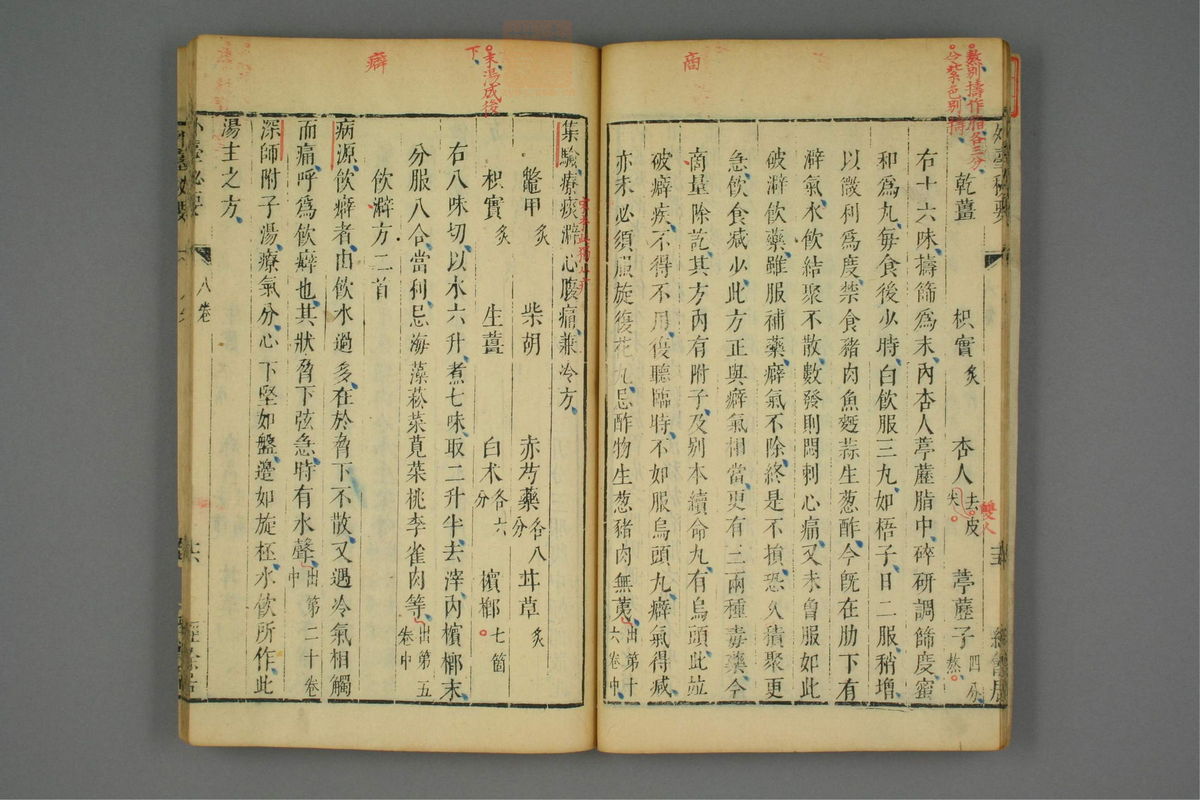 乾薑 枳實炙 杏人去皮尖 葶藶子四分熬
右十六味擣篩為末內杏人葶藶脂中碎研調篩度蜜
和為丸每食後少時白飲服三九如梧子日二服稍增
以微利為度禁食豬肉魚麪蒜生葱酢今既在肋下有
澼氣水飲結聚不散數發則悶刺心痛又未曾服如此
破澼飲藥雖服補藥癖氣不除終是不損恐久積聚更
急飲食減少此方正與癖氣相當更有三兩種毒藥今
商量除訖其方內有附子及別本續命丸有烏頭此並
破癖疾不得不用後聽臨時不如服烏頭丸癖氣得減
亦未必須服旋復花丸忌酢物生葱豬肉無荑出第十六卷中
集驗療痰澼心腹痛兼冷方
鼈甲炙 柴胡 赤芍藥各八分 甘草炙
枳實炙 生薑 白朮各六分 檳榔七箇
右八味切以水六升煮七味取二升半去滓內檳榔末
分服八合當利忌海藻菘菜莧菜桃李雀肉等出第五卷中
飲澼方二首
病源飲癖者由飲水過多在於脅下不散又遇冷氣相觸
而痛呼為飲癖也其狀脅下弦急時有水聲出第二十卷中
深師附子湯療氣分心下堅如盤邊如旋柸水飲所作此
湯主之方
八卷
癖
末湯成後
下
雙人
熬別擣作脂各三分
令紫色別擣